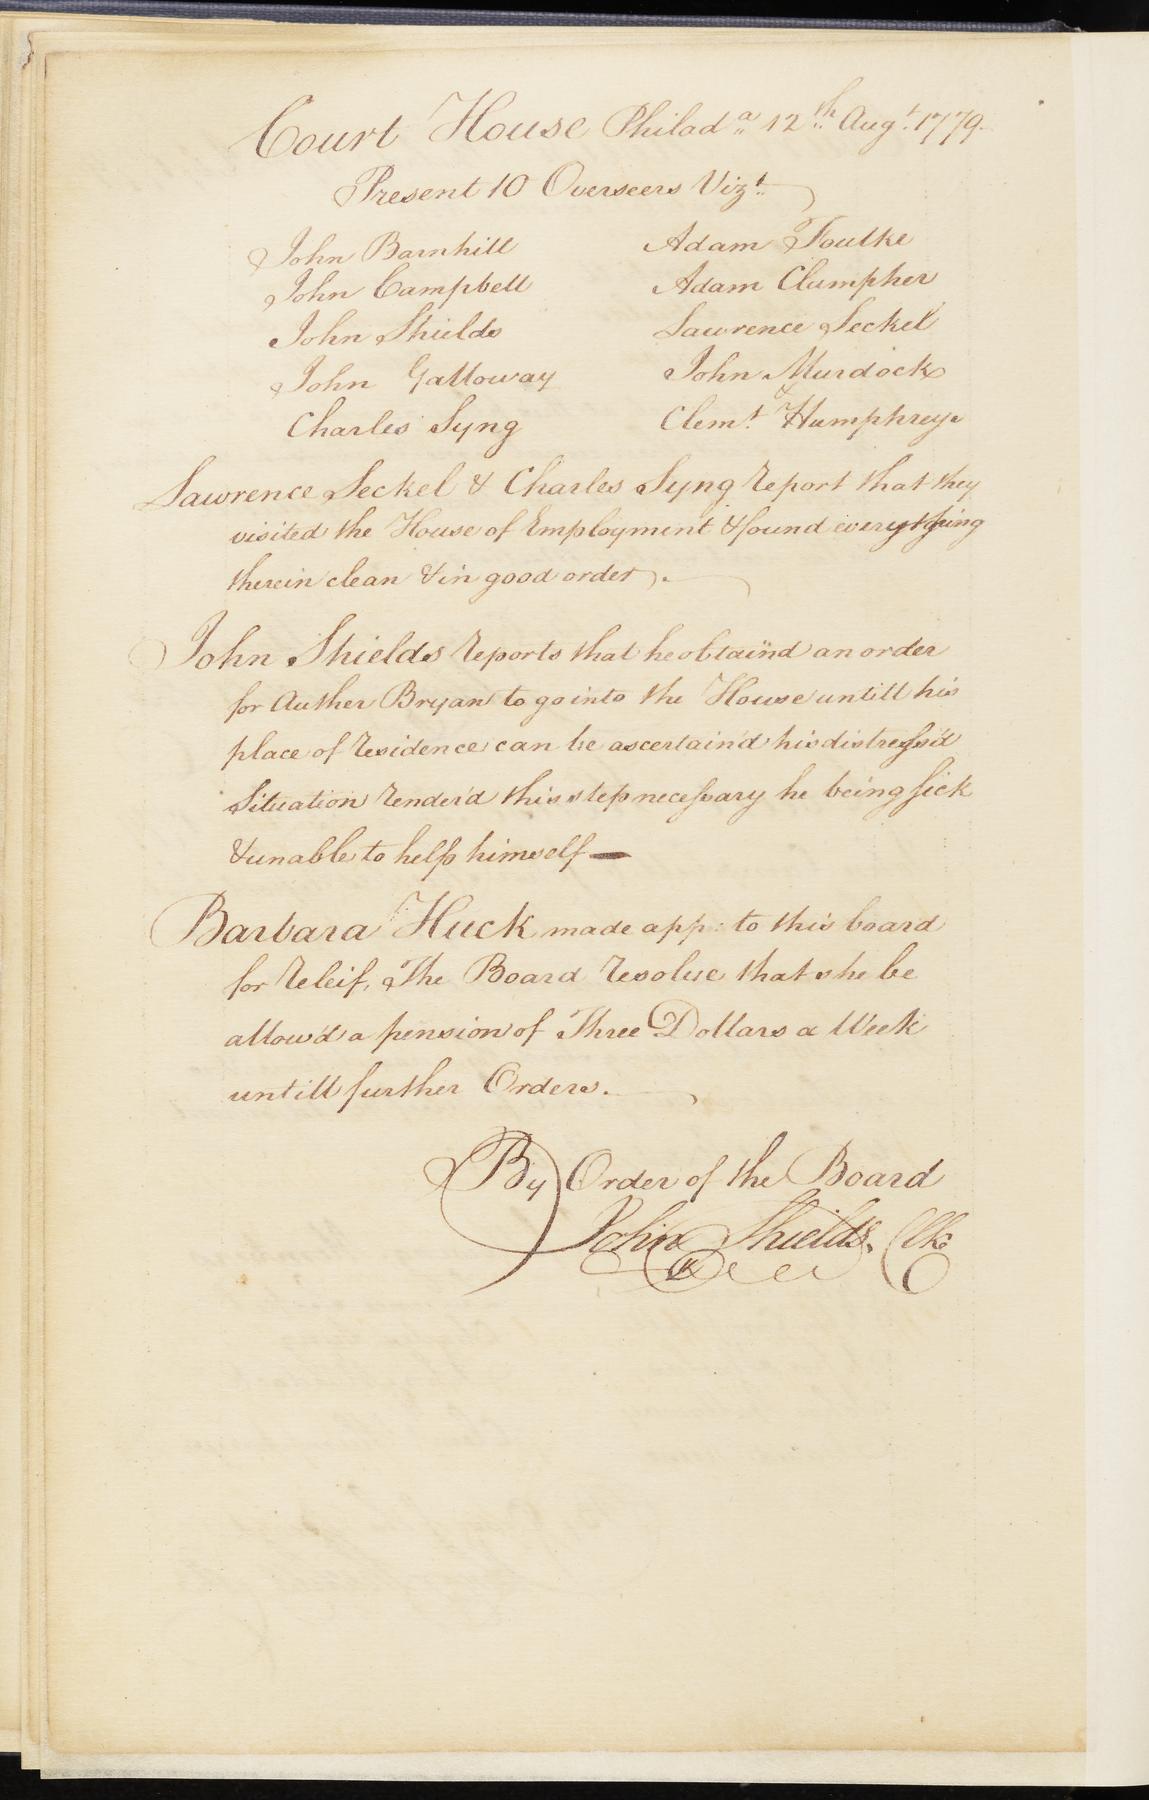 Court House Philad.a 12th Augt. 1779.
Present 10 Overseers Vizt.
John Barnhill
John Campbell
John Shields
John Galloway
Charles Syng
Adam Foulke
Adam Clumpher
Lawrence Seckel
John Murdock
&
Clemt. Humphreys
Lawrence Seckel & Charles Syng report that they
visited the House of Employment & found everything
therein clean & in good order.
John Shields reports that he obtain'd an order
for Auther Bryan to go into the House untill his
place of residence can be ascertain'd his distress'd
Situation render'd this step necessary he being sick
& unable to help himself —
Barbara Huck made app: to this board
for releif, The Board resolve that she be
allow'd a pension of Three Dollars a Week
untill further Orders.
By Order of the Board
John Shields. Clk